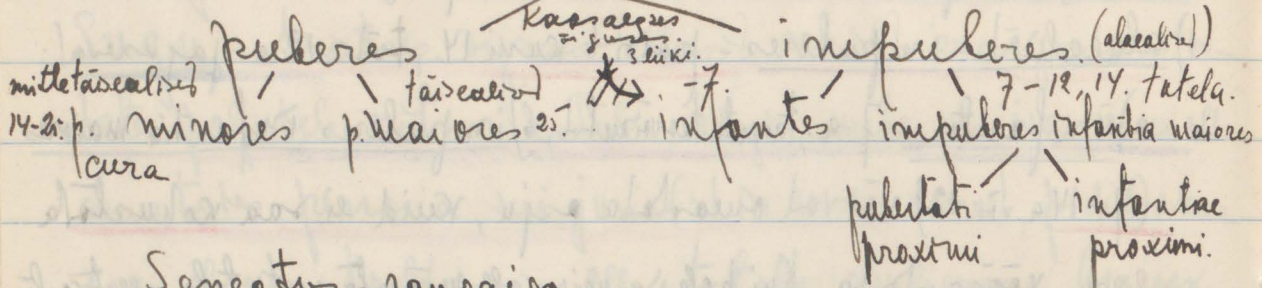 Kaasaegses
õiguses
3 liiki.
puberes impuberes. (alaealised)
mittetäisealised täisealised -7. 7-12, 14. tutela.
14-25. p. minores p. maiores 25- infantes impuberes infantia maiores
cura
pubertati infantiae
proximi proximi.